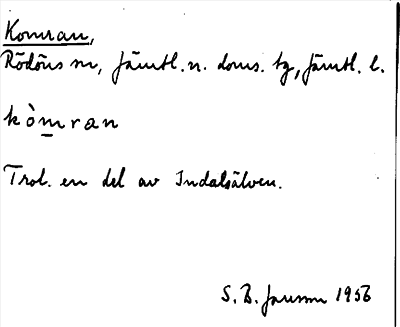 Komran,
Rödöns sn, Jämtl. n. doms. tg, Jämtl. l.
kòmran
Trol. en del av Indalsälven.
S. B. Jansson 1956